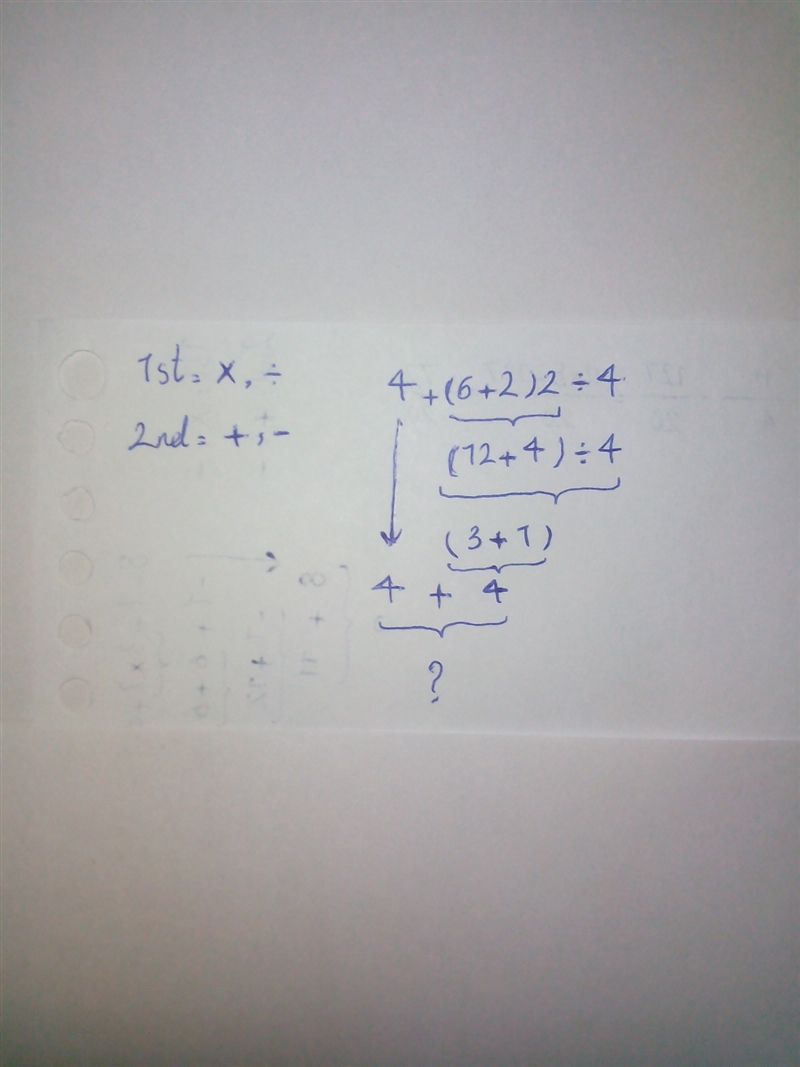 1st = ×, ÷
2nd = +, -
4 + (6+2)2 ÷ 4
(12+4) ÷ 4
(3+1)
4 + 4
?